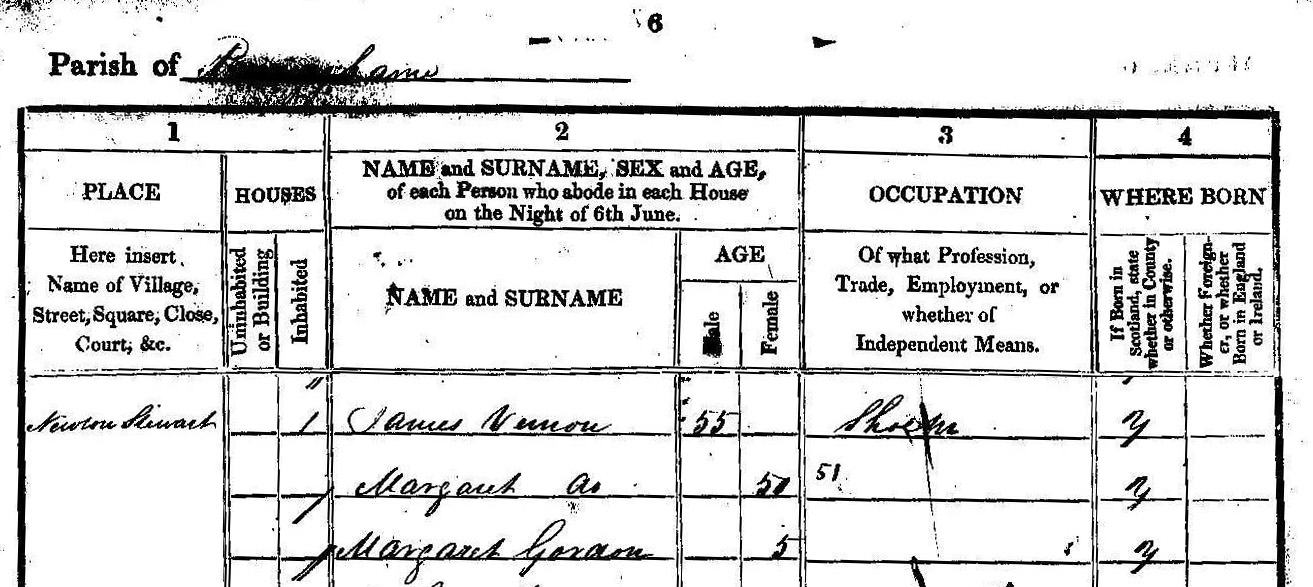 6
Parish of
1 2 3 4
PLACE
HOUSES
NAME and SURNAME, SEX and AGE,
of each Person who abode in each House
on the Night of 6th June.
OCCUPATION
WHERE BORN
Here insert
Name of Village,
Street, Square, Close,
Court, &c.
Uninhabited
or Building
Inhabited
NAME and SURNAME
AGE
Male
Female
Of what Profession,
Trade, Employment, or
whether of
Independent Means.
If Born in
Scotland, state
whether in County
or otherwise.
Whether Foreign-
er, or whether
Born in England
or Ireland.
Newton Stewart 1 James Vernon 55 y
Margaret 50 51 y
Margaret Gordon 5 y